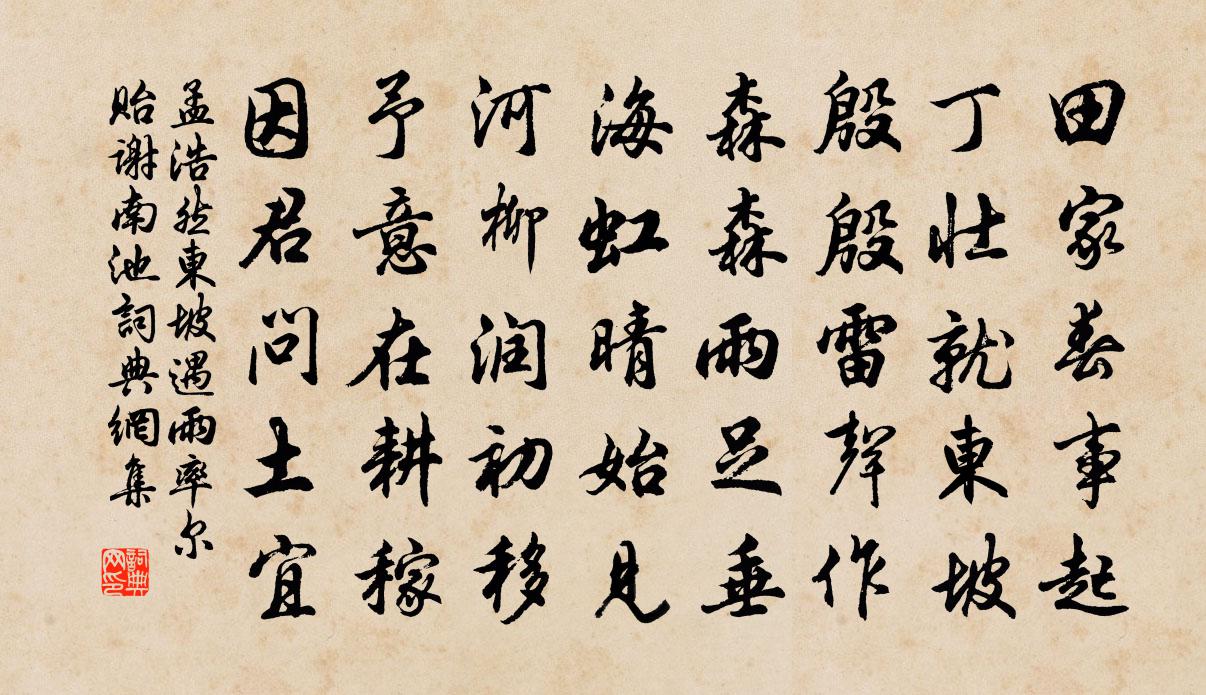 田家春事起
丁壮就東坡
殷殷雷聲作
森森雨足垂
海虹晴始見
河柳润初移
予意在耕稼
因君問土宜
孟浩然東坡遇雨率尔
貽谢南池詞典網集
詞典网印